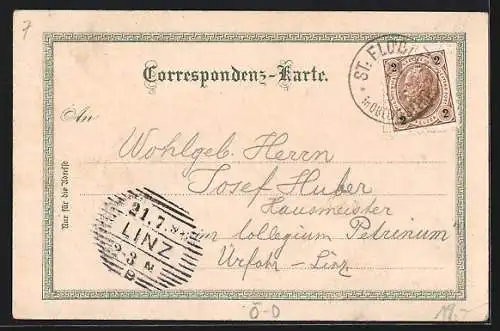 7
Correspondenz-Karte.
ST. FLO
2 2
2 2
An
Wohlgeb. Herrn
Josef Huber
Hausmeister
im Collegium Petrinum
Urfahr-Linz.
Nur für die Adresse
21.7.9
LINZ
2-3 N
B
Ö-O
18.-